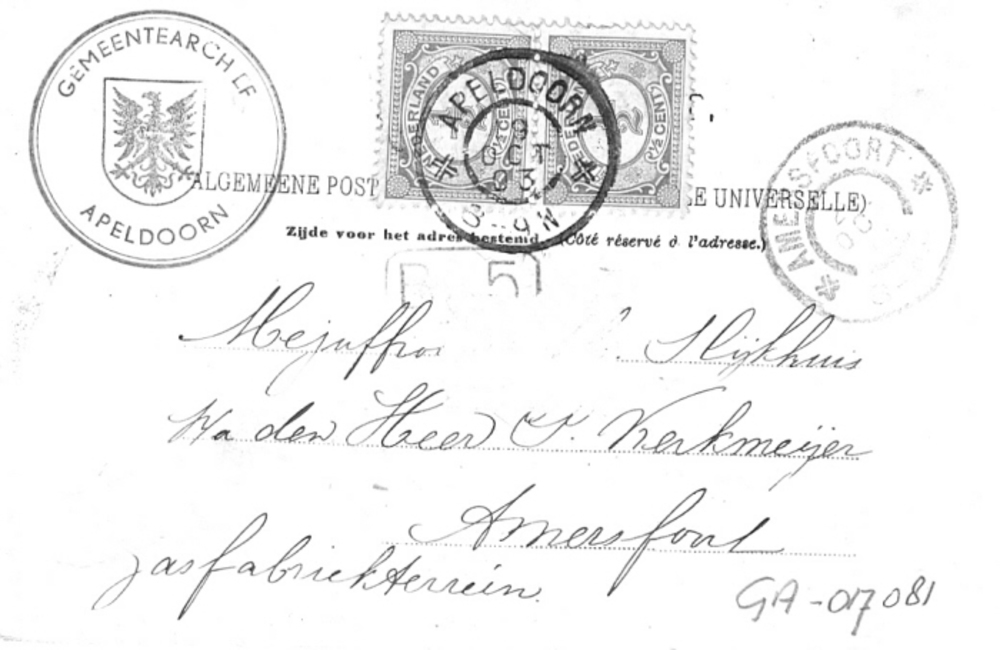 GEMEENTEARCH EF
APELDOORN
NEDERLAND
2½ CENT
APELDOORN
9
OCT
03
8-9 N
ALGEMEENE POST E UNIVERSELLE)
Zijde voor het adres bestemd. (Côté réservé à l'adresse.)
AMERSFOORT
5
Mejuffro Slijkhuis
p/a den Heer J. Kerkmeijer
Amersfoort
gasfabriekterrein.
GA-017081